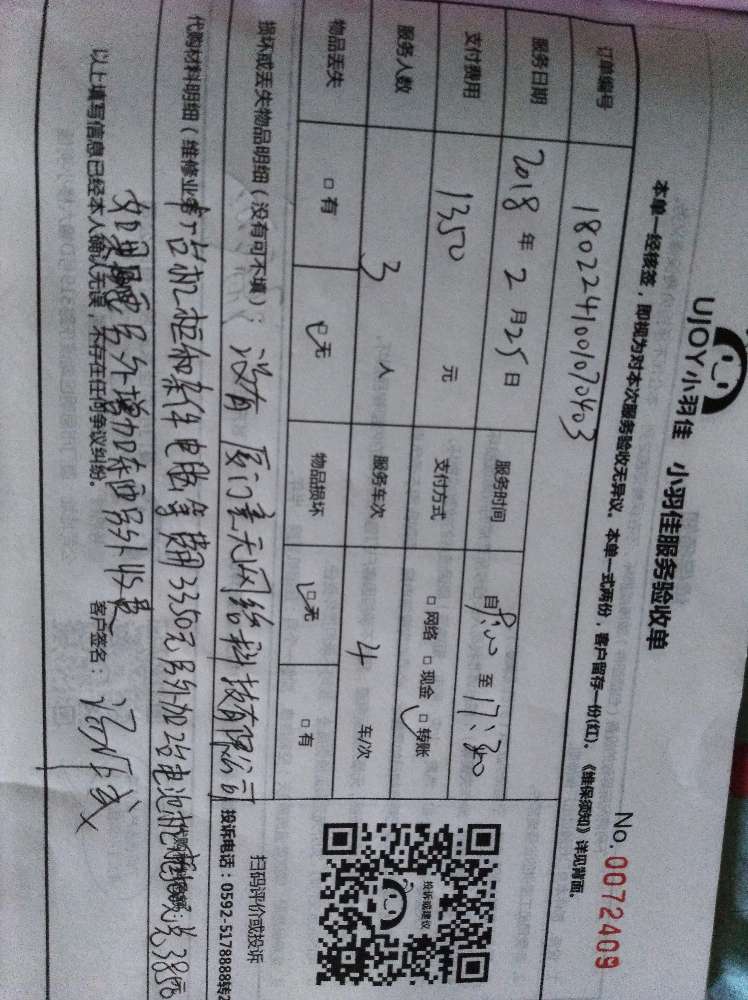 UJOY小羽佳 小羽佳服务验收单
No. 0072409
本单一经核签，即视为对本次服务验收无异议。本单一式两份，客户留存一份(红)。《维保须知》详见背面。
订单编号 1802241001070403
服务日期 2018 年 2 月 25 日 服务时间 自 9:00 至 17:30
支付费用 1350 元 支付方式 □ 网络 □ 现金 □ 转账
服务人数 3 人 服务车次 4 车/次
物品丢失 □ 有 □ 无 物品损坏 □ 无 □ 有
投诉或建议
扫码评价或投诉
投诉电话：0592-5178888转2
损坏或丢失物品明细（没有可不填）：没有 厦门 无网络科技有限公司
代购材料明细（维修业务 台机柜和 电脑等 费用3350元另外加 台电池 元 3850
如果 另外增加东西另外收费
以上填写信息已经本人确认无误，不存在任何争议纠纷。 客户签名：